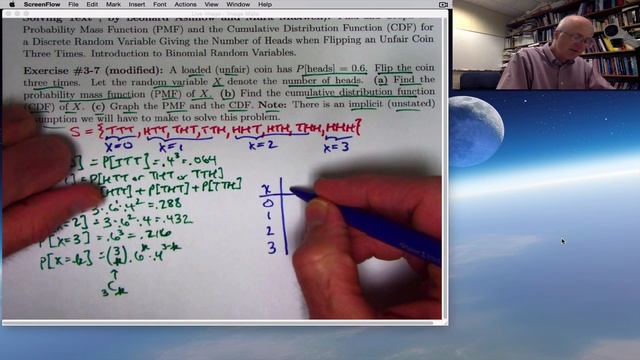 ScreenFlow File Edit Actions View Window Help
Solving Text", by Leonard
Probability Mass Function (PMF) and the Cumulative Distribution Function (CDF) for
a Discrete Random Variable Giving the Number of Heads when Flipping an Unfair Coin
Three Times. Introduction to Binomial Random Variables.
Exercise #3-7 (modified): A loaded (unfair) coin has P[heads] = 0.6. Flip the coin
three times. Let the random variable X denote the number of heads. (a) Find the
probability mass function (PMF) of X. (b) Find the cumulative distribution function
(CDF) of X. (c) Graph the PMF and the CDF. Note: There is an implicit (unstated)
assumption we will have to make to solve this problem.
S = {TTT, HTT, THT, TTH, HHT, HTH, THH, HHH}
x=0 x=1 x=2 x=3
= P[TTT] = .4³ = .064
= P[HTT or THT or TTH]
+ P[THT] + P[TTH]
3·.6¹·.4² = .288
x=2] = 3·.6²·.4 = .432
P[X=3] = .6³ = .216
P[X=k] = (3 k)·.6ᵏ·.4³⁻ᵏ
↑
₃Cₖ
x
0
1
2
3